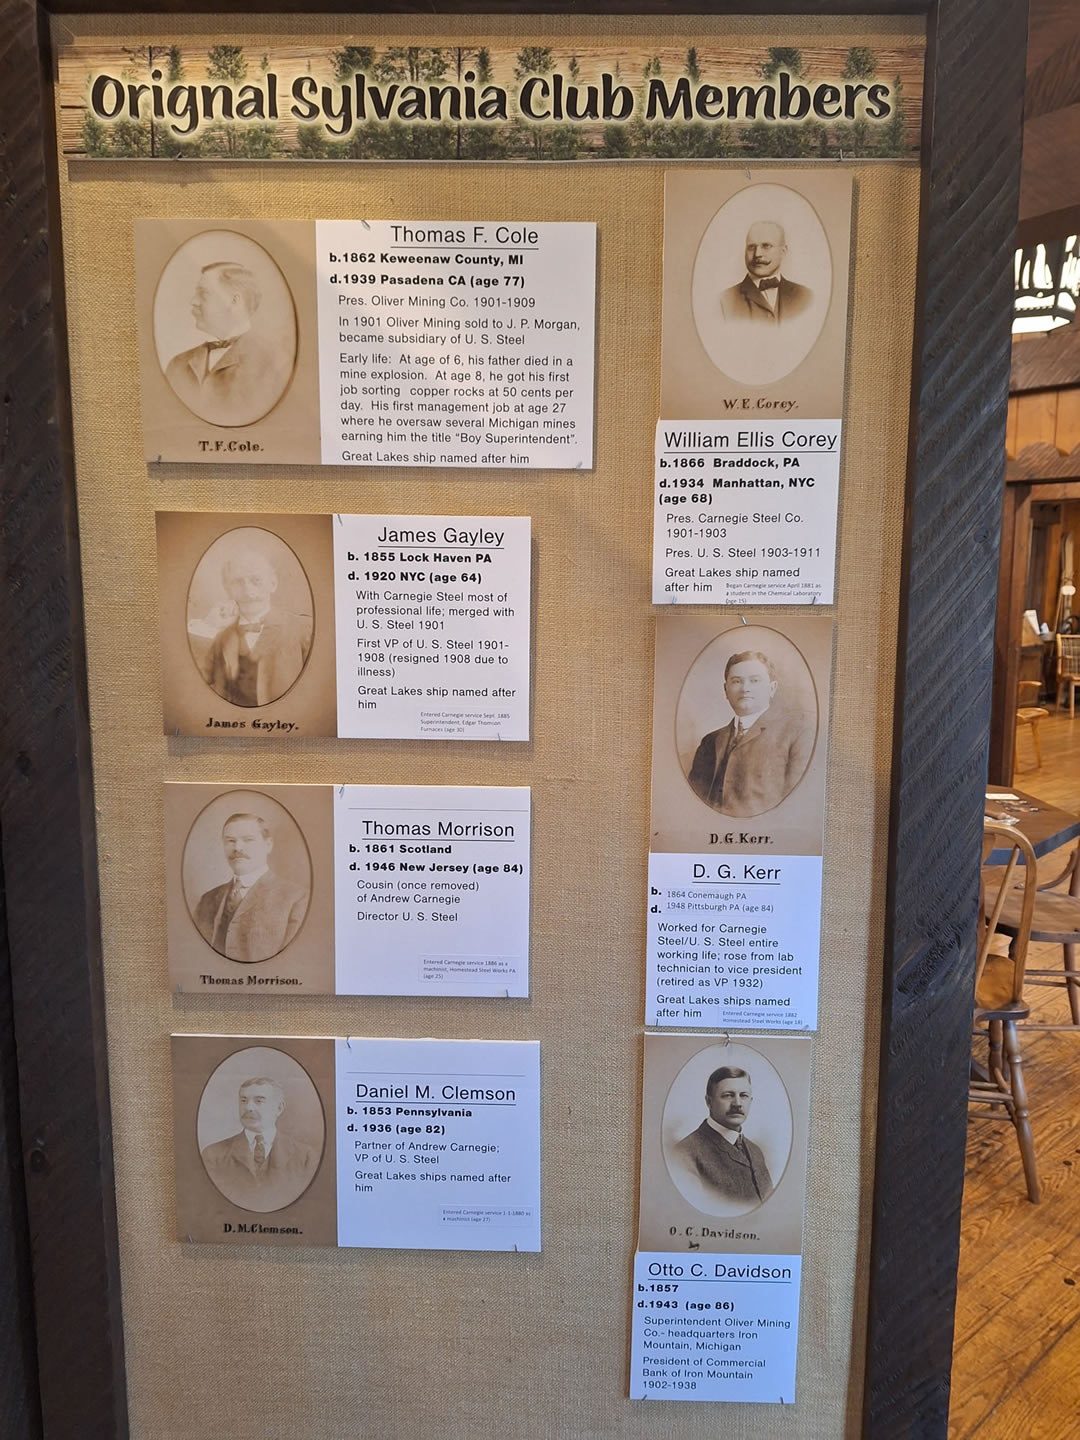 Orignal Sylvania Club Members
T.F.Cole.
Thomas F. Cole
b.1862 Keweenaw County, MI
d.1939 Pasadena CA (age 77)
Pres. Oliver Mining Co. 1901-1909
In 1901 Oliver Mining sold to J. P. Morgan,
became subsidiary of U. S. Steel
Early life: At age of 6, his father died in a
mine explosion. At age 8, he got his first
job sorting copper rocks at 50 cents per
day. His first management job at age 27
where he oversaw several Michigan mines
earning him the title “Boy Superintendent”.
Great Lakes ship named after him
James Gayley.
James Gayley
b. 1855 Lock Haven PA
d. 1920 NYC (age 64)
With Carnegie Steel most of
professional life; merged with
U. S. Steel 1901
First VP of U. S. Steel 1901-
1908 (resigned 1908 due to
illness)
Great Lakes ship named after
him
Entered Carnegie service Sept. 1885
Superintendent, Edgar Thomson
Furnaces (age 30)
Thomas Morrison.
Thomas Morrison
b. 1861 Scotland
d. 1946 New Jersey (age 84)
Cousin (once removed)
of Andrew Carnegie
Director U. S. Steel
Entered Carnegie service 1886 as a
machinist, Homestead Steel Works PA
(age 25)
D.M.Clemson.
Daniel M. Clemson
b. 1853 Pennsylvania
d. 1936 (age 82)
Partner of Andrew Carnegie;
VP of U. S. Steel
Great Lakes ships named after
him
Entered Carnegie service 1-1-1880 as
a machinist (age 27)
W.E.Corey.
William Ellis Corey
b.1866 Braddock, PA
d.1934 Manhattan, NYC
(age 68)
Pres. Carnegie Steel Co.
1901-1903
Pres. U. S. Steel 1903-1911
Great Lakes ship named
after him
Began Carnegie service April 1881 as
a student in the Chemical Laboratory
(age 15)
D.G.Kerr.
D. G. Kerr
b. 1864 Conemaugh PA
d. 1948 Pittsburgh PA (age 84)
Worked for Carnegie
Steel/U. S. Steel entire
working life; rose from lab
technician to vice president
(retired as VP 1932)
Great Lakes ships named
after him
Entered Carnegie service 1882
Homestead Steel Works (age 18)
O.C.Davidson.
Otto C. Davidson
b.1857
d.1943 (age 86)
Superintendent Oliver Mining
Co.- headquarters Iron
Mountain, Michigan
President of Commercial
Bank of Iron Mountain
1902-1938